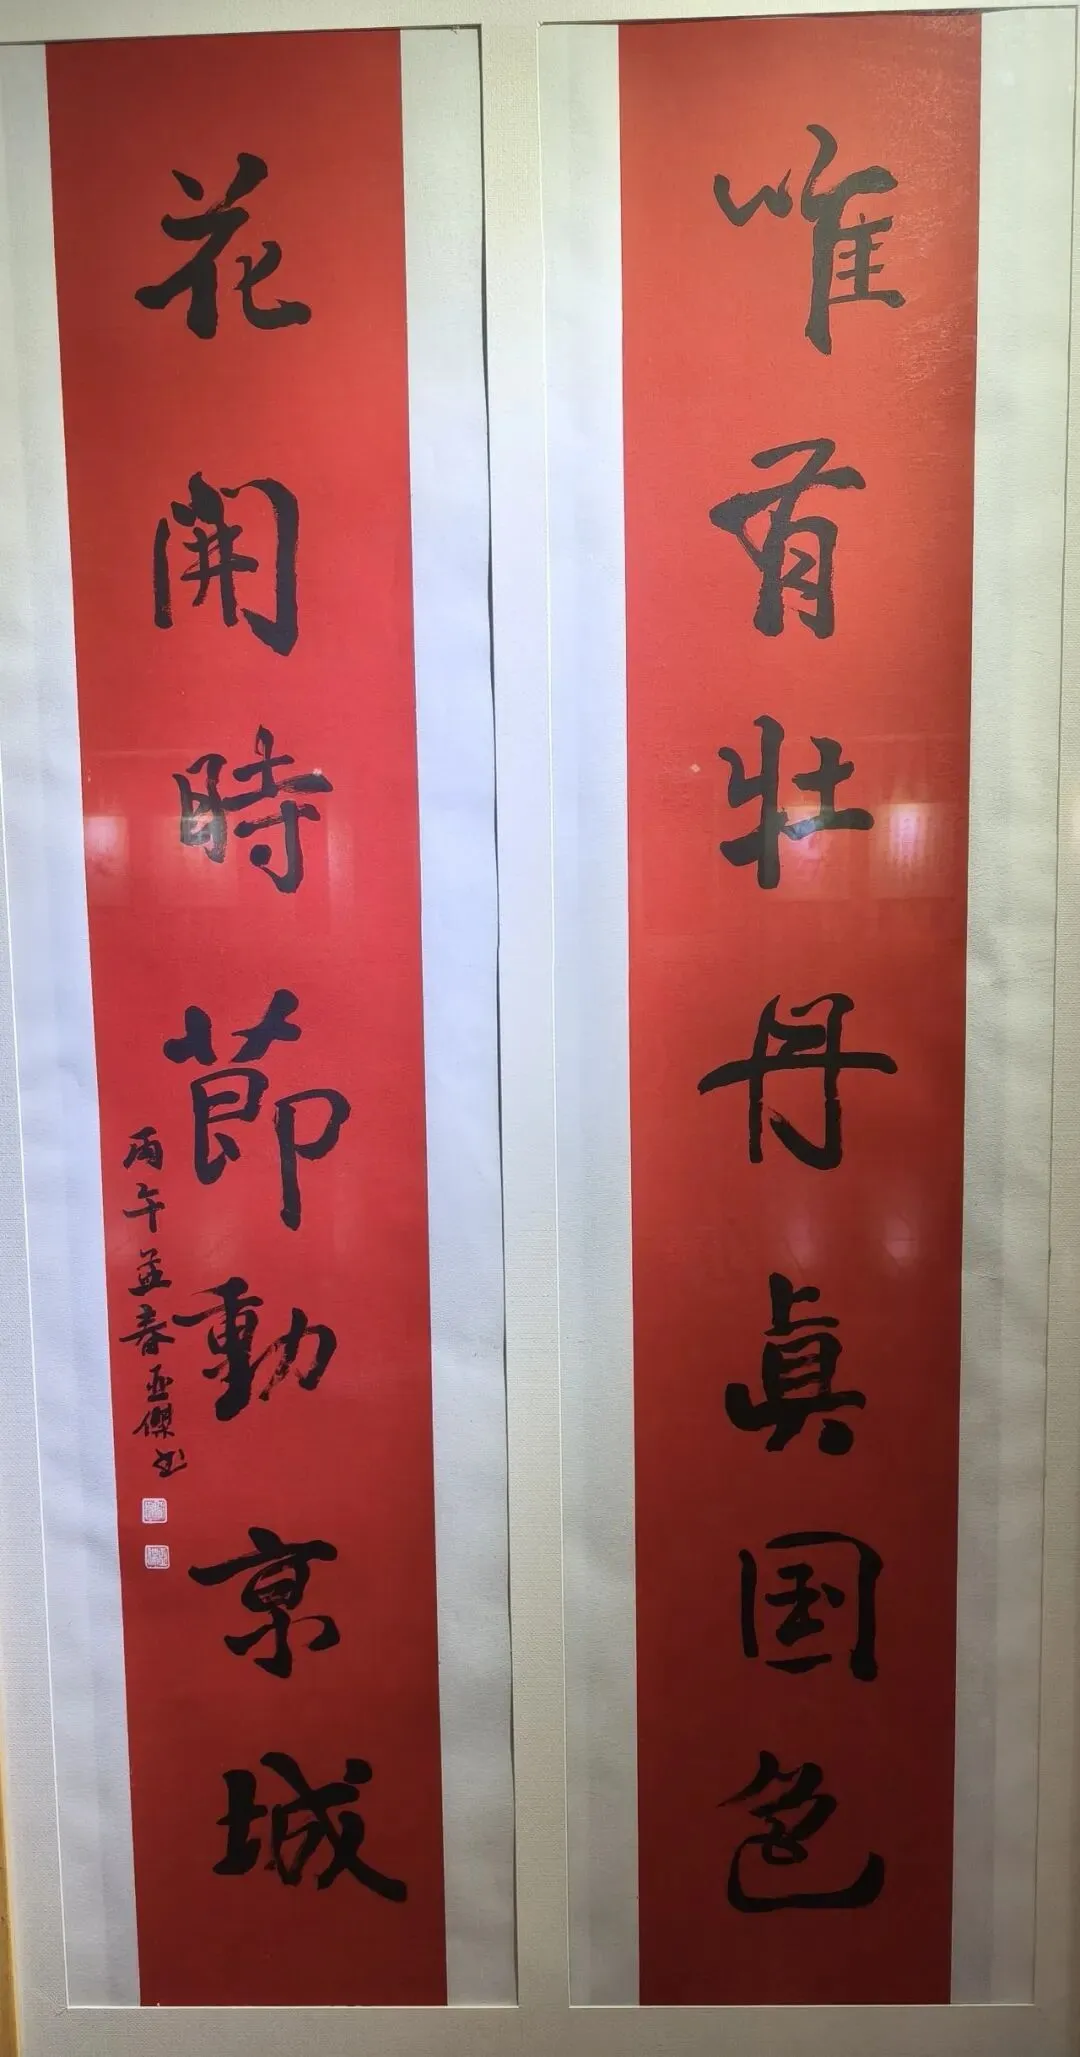 唯有牡丹真国色
花開時節動京城
丙午孟春亚傑书